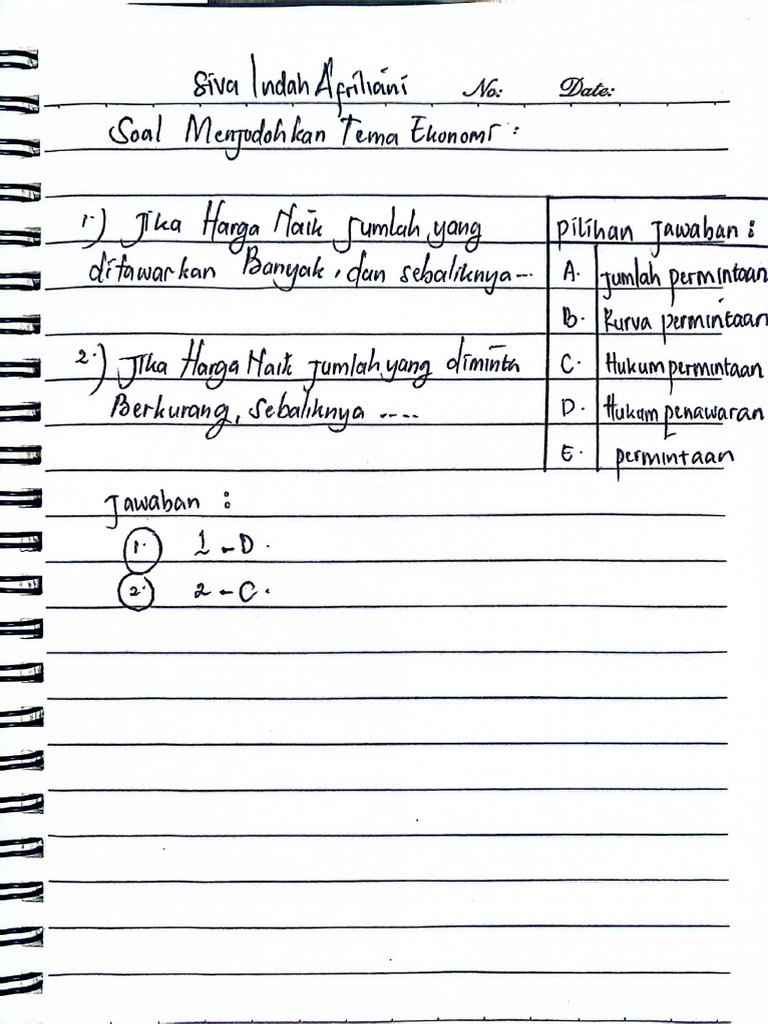 Siva Indah Afriliani No: Date:
Soal Menjodohkan Tema Ekonomi :
1.) Jika Harga Naik Jumlah yang
ditawarkan Banyak, dan sebaliknya...
2.) Jika Harga Naik jumlah yang diminta
Berkurang, sebaliknya ....
pilihan Jawaban :
A. Jumlah permintaan
B. Kurva permintaan
C. Hukum permintaan
D. Hukum penawaran
E. permintaan
Jawaban :
1. 1 - D.
2. 2 - C.